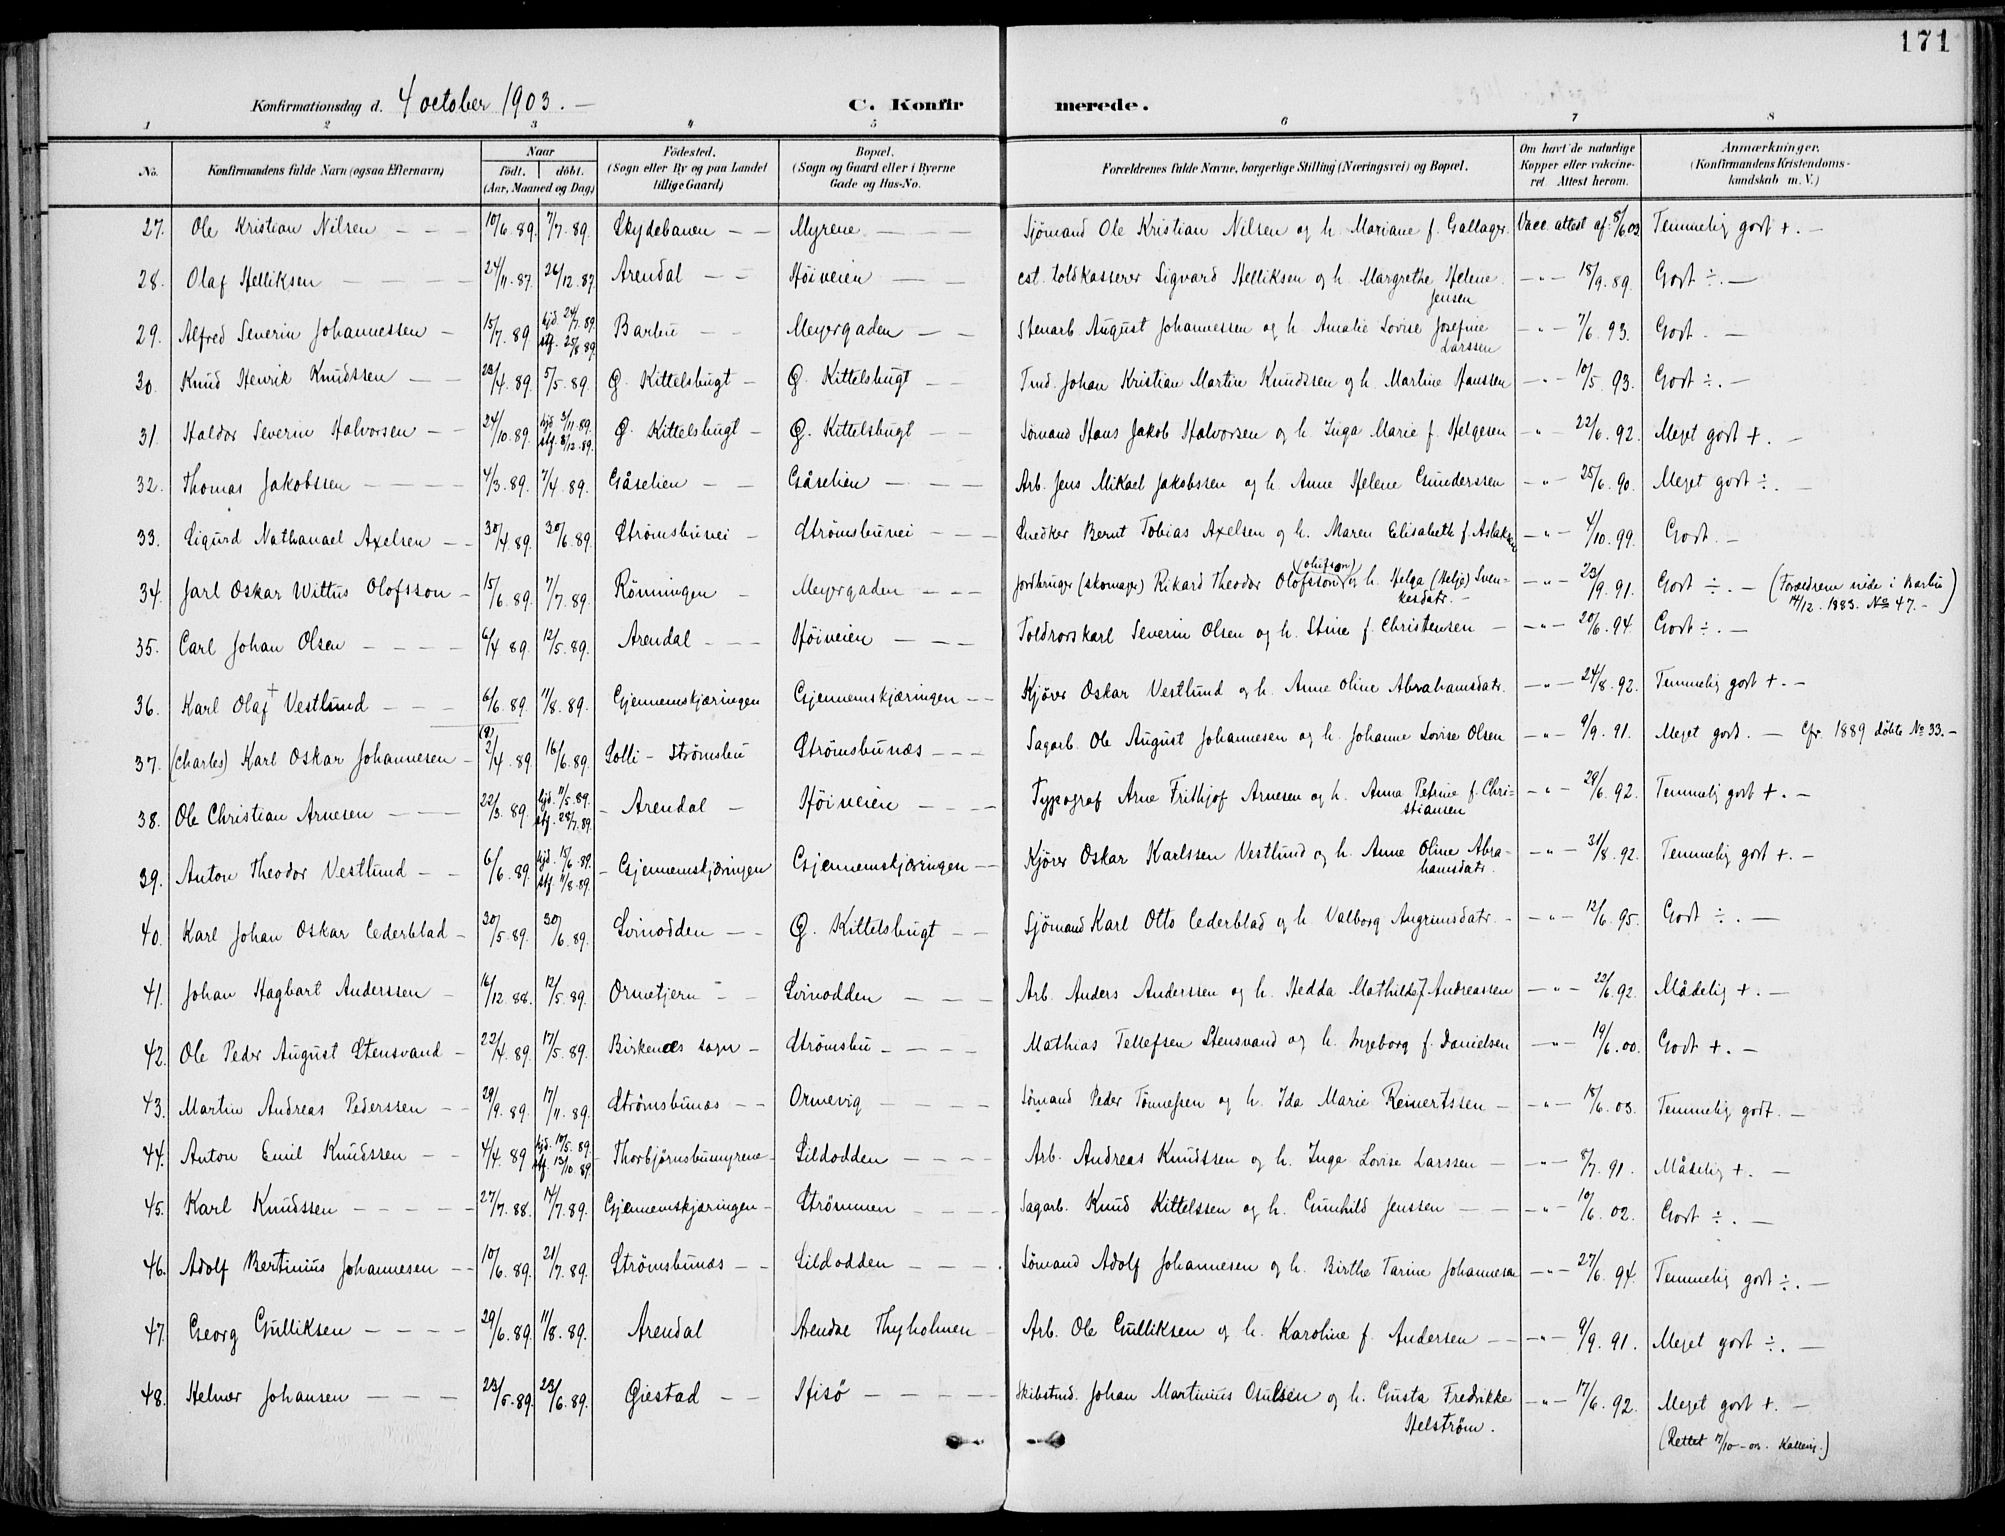 171
Konfirmationsdag d. 4 october 1903. — C. Konfirmerede.
1 2 3 4 5 6 7 8
No. Konfirmandens fulde Navn (ogsaa Efternavn) Naar født. døbt. (Aar, Maaned og Dag) Fødested. (Sogn eller By og paa Landet tillige Gaard) Bopæl. (Sogn og Gaard eller i Byerne Gade og Hus-No. Forældrenes fulde Navne, borgerlige Stilling (Næringsvei) og Bopæl. Om havt de naturlige Kopper eller vakcineret. Attest herom. Anmærkninger. (Konfirmandens Kristendomskundskab m. V.)
27. Ole Kristian Nilsen — 10/6. 89. 7/7. 89. Skydebanen — Myrene — Sjömand Ole Kristian Nilsen og h. Mariane f. Gallager. Vacc. attest af 8/6 03 Temmelig godt +. —
28. Olaf Helliksen — 24/11. 87. 26/12. 87 Arendal — Høiveien — cst. toldkasserer Sigvard Helliksen og h. Margrethe Helene Jensen — " — 18/9. 89. Godt ÷. —
29. Alfred Severin Johannessen — 15/7. 89 hjd. 24/7. 89. stf. 25/8 89. Barbu — Meyergaden — Stenarb. August Johannessen og h. Amalie Lovise Josefine Larssen — " — 7/6. 93. Godt. —
30. Knud Henrik Knudssen — 23/4. 89. 5/5. 89. G. Kittelsbugt — G. Kittelsbugt — Tmd. Johan Kristian Martin Knudssen og h. Martine Hanssen — " — 10/5. 93. Godt ÷. —
31. Haldor Severin Halvorsen — 24/10. 89. hjd. 3/11. 89. stf. 8/12. 89. G. Kittelsbugt — G. Kittelsbugt — Sømand Hans Jakob Halvorsen og h. Inga Marie f. Helgesen — " — 22/6. 92. Meget godt +. —
32. Thomas Jakobssen — 4/3. 89. 7/4. 89. Gåselien — Gåselien — Arb. Jens Mikael Jakobssen og h. Anne Helene Gunderssen — " — 25/6. 90. Meget godt ÷. —
33. Sigurd Nathanael Axelsen — 30/4. 89. 30/6. 89. Strømsbuvei — Strømsbuvei — Snedker Bernt Tobias Axelsen og h. Maren Elisabeth f. Aslaksen — " — 4/10. 99. Godt. —
34. Jarl Oskar Wittus Olofsson — 15/6. 89. 7/7. 89. Rönningen — Meyergaden — Jordbruger (skomager) Rikard Theodor Olofsson (Olufson) og h. Helga (Helje) Svenkesdatr. — " — 23/9. 91. Godt ÷. — (Forældrene viede i Barbu 14/12. 1883. No 47. —)
35. Carl Johan Olsen — 6/4 89. 12/5. 89. Arendal — Høiveien — Toldrorskarl Severin Olsen og h. Stine f. Christensen — " — 20/6. 94. Godt ÷. —
36. Karl Olaf + Vestlund — 6/6. 89. 11/8. 89. Gjennemskjæringen Gjennemskjæringen — Kjörer Oskar Vestlund og h. Anne Oline Abrahamsdatr. — " — 24/8. 92. Temmelig godt +. —
37. (Charles) Karl Oskar Johannesen — (9) 2/4. 89 16/6. 89. Solli - Strømsbu Strømsbunæs — Sagarb. Ole August Johannesen og h. Johanne Lovise Olsen — " — 9/9. 91. Meget godt. — Cfr. 1889 døbte No 33. —
38. Ole Christian Arnesen — 22/3. 89. hjd. 11/5. 89. stf. 28/7. 89. — Arendal — Høiveien — Typograf Arne Frithjof Arnesen og h. Anna Petrine f. Christiansen — " — 29/6. 92. Temmelig godt +. —
39. Anton Theodor Vestlund — 6/6. 89. hjd. 15/6. 89. stf. 11/8. 89. — Gjennemskjæringen Gjennemskjæringen — Kjörer Oskar Karlssen Vestlund og h. Anne Oline Abrahamsdatr. — " — 31/8. 92. Temmelig godt +. —
40. Karl Johan Oskar Cederblad — 30/5. 89. 30/6. 89. Svinodden — G. Kittelsbugt — Sjömand Karl Otto Cederblad og h. Valborg Angrimsdatr. — " — 12/6. 95. Godt ÷. —
41. Johan Hagbart Anderssen — 16/12. 88. 12/5. 89. Ormetjern — Svinodden — Arb. Anders Anderssen og h. Hedda Mathilde f. Andreassen — " — 22/6. 92. Mådelig +. —
42. Ole Peder August Stensvand — 22/4. 89. 17/5. 89. Birkenæs sogn — Strömsbu — Mathias Tellefsen Stensvand og h. Ingeborg f. Danielsen — " — 19/6. 00. Godt +. —
43. Martin Andreas Pederssen — 29/9. 89. 17/11. 89. Strömsbunæs — Ormevig — Sømand Peder Tönnesen og h. Ida Marie Reinertssen — " — 18/6. 03. Temmelig godt. —
44. Anton Emil Knudssen — 4/4. 89 hjd. 17/5. 89. stf. 13/10 89. — Thorbjørnsbumyrene — Sildodden — Arb. Andreas Knudssen og h. Inga Lovise Larssen — " — 8/7. 91. Mådelig +. —
45. Karl Knudssen — 27/7. 88. 14/7. 89. Gjennemskjæringen — Strømmen — Sagarb. Knud Kittelssen og h. Gunhild Jenssen — " — 10/6. 02. Godt ÷. —
46. Adolf Bertinius Johannesen — 10/6. 89. 21/7. 89. Strömsbunæs — Sildodden — Sömand Adolf Johannesen og h. Birthe Tarine Johannesen — " — 27/6. 94. Temmelig godt ÷. —
47. Georg Gulliksen — 29/6. 89. 11/8. 89. Arendal Arendal Thyholmen — Arb. Ole Gulliksen og h. Karoline f. Andersen — " — 9/9. 91. Meget godt ÷. —
48. Helmer Johansen — 23/5. 89. 23/6. 89. Øiestad — Hisö — Skibstmd. Johan Martinius Osulsen og h. Gusta Fredrikke Helström. — " — 17/6. 92. Meget godt +. —
(Rettet 7/10 - 03.